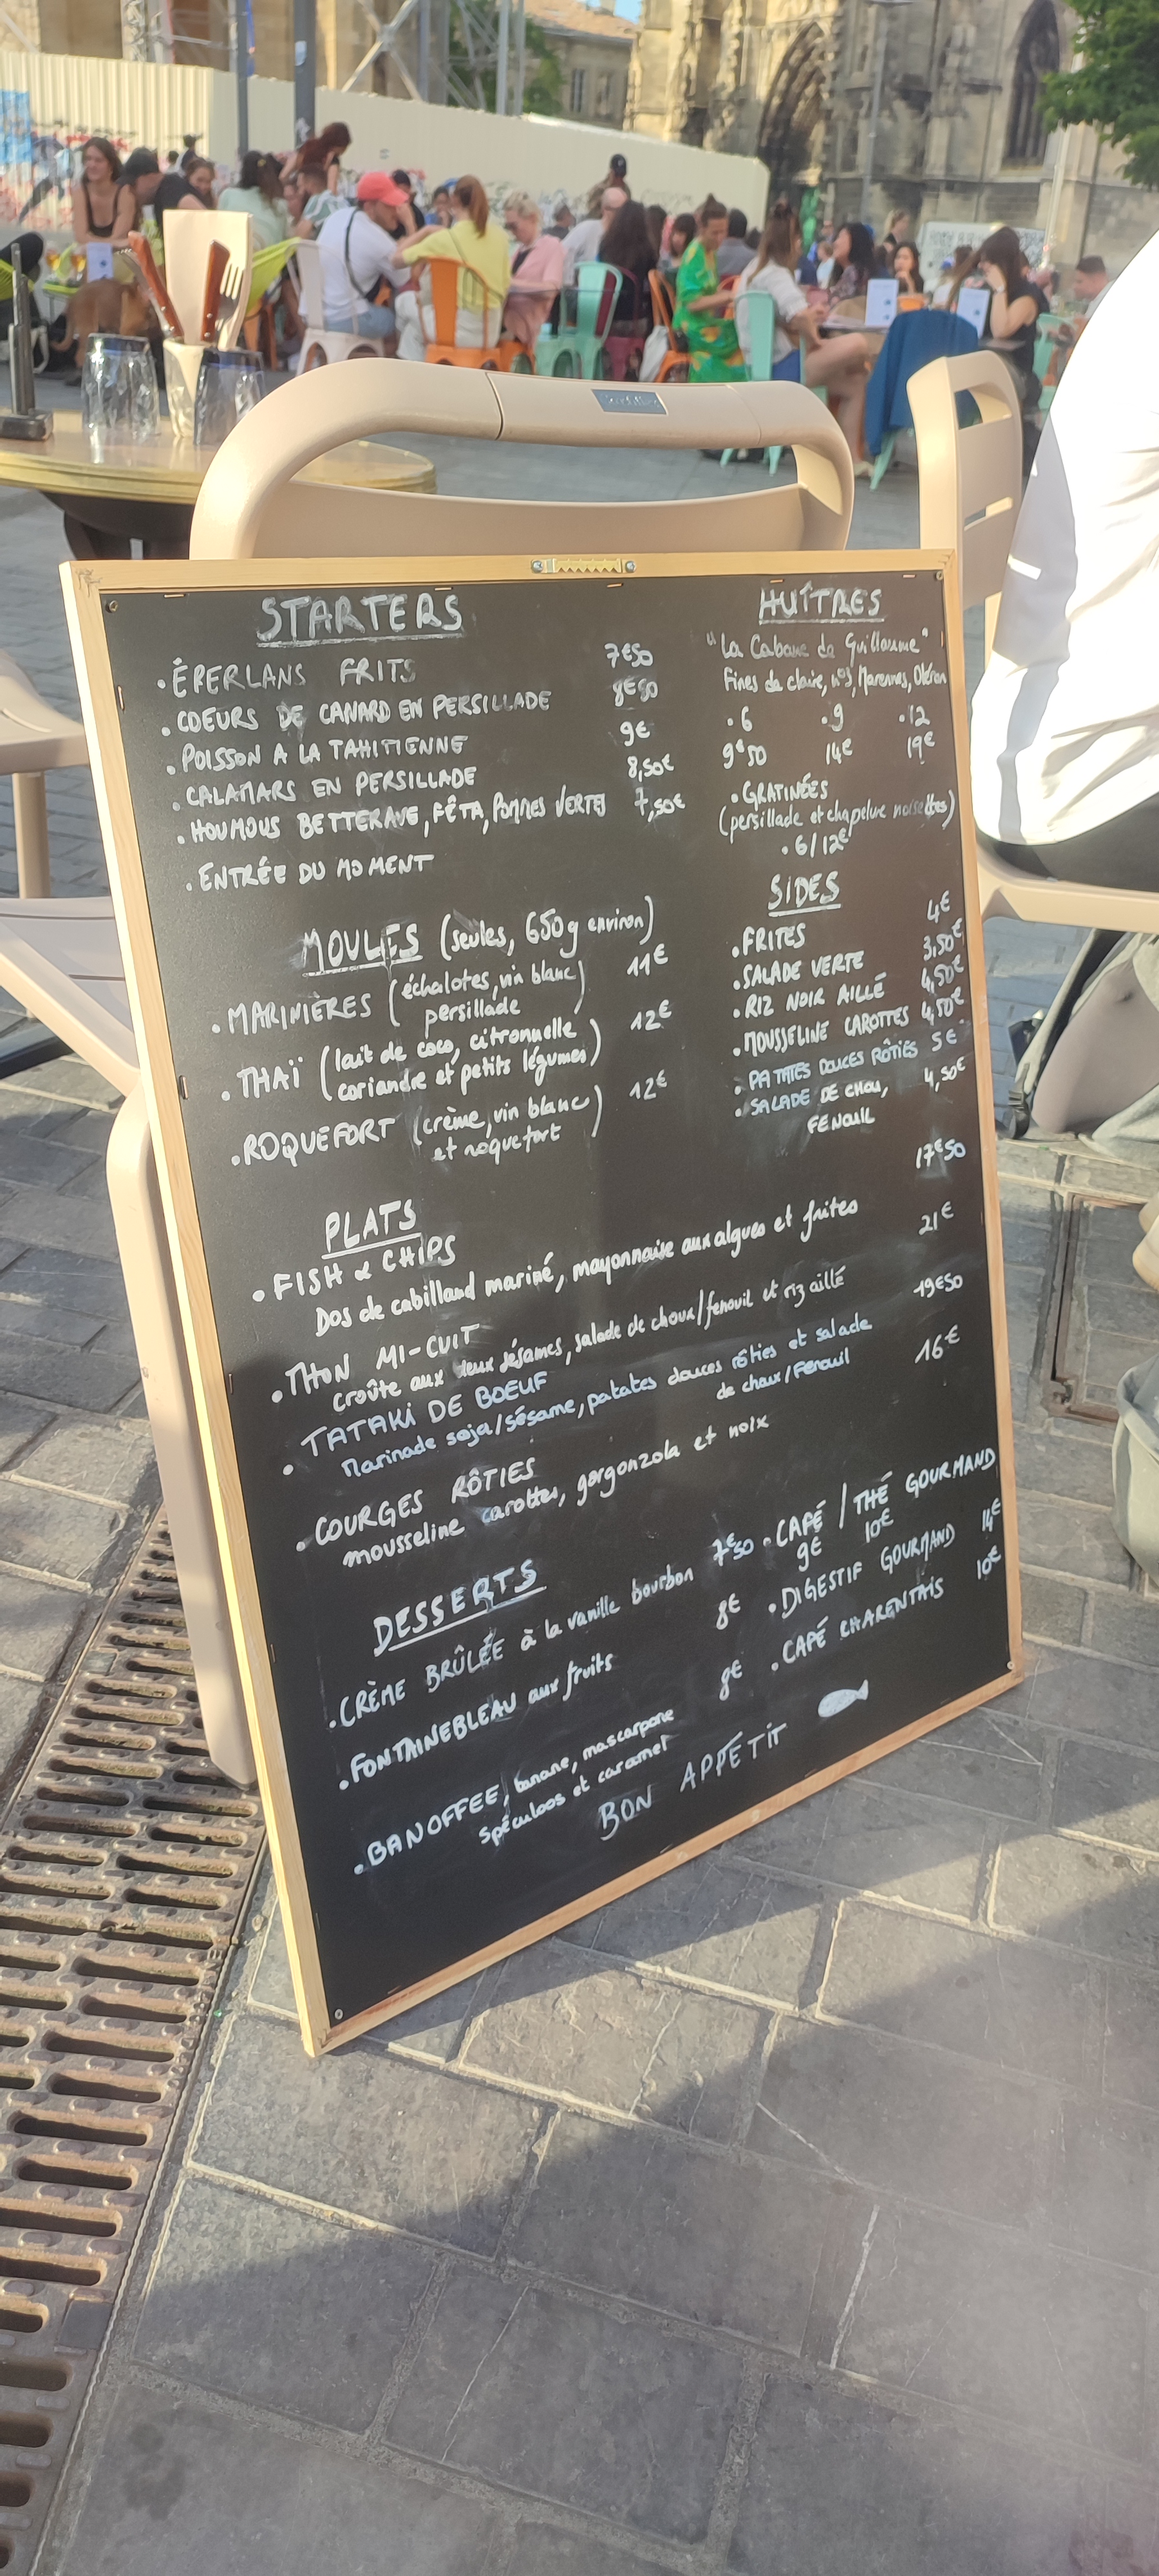 STARTERS
• ÉPERLANS FRITS 7€50
• COEURS DE CANARD EN PERSILLADE 8€50
• POISSON A LA TAHITIENNE 9€
• CALAMARS EN PERSILLADE 8,50€
• HOUMOUS BETTERAVE, FÊTA, POMMES VERTES 7,50€
• ENTRÉE DU MOMENT
HUÎTRES
"La Cabane de Guillaume"
Fines de claire, n°3, Marennes, Oléron
• 6 • 9 • 12
9€50 14€ 19€
• GRATINÉES
(persillade et chapelure noisettes)
• 6/12€
MOULES (seules, 650g environ)
• MARINIÈRES (échalotes, vin blanc 11€
persillade)
• THAÏ (lait de coco, citronnelle 12€
coriandre et petits légumes)
• ROQUEFORT (crème, vin blanc 12€
et roquefort)
SIDES
• FRITES 4€
• SALADE VERTE 3,50€
• RIZ NOIR AILLÉ 4,50€
• MOUSSELINE CAROTTES 4,50€
• PATATES DOUCES RÔTIES 5€
• SALADE DE CHOU, 4,50€
FENOUIL
PLATS
• FISH & CHIPS 17€50
Dos de cabillaud mariné, mayonnaise aux algues et frites
• THON MI-CUIT 21€
croûte aux deux sésames, salade de choux/fenouil et riz aillé
• TATAKI DE BOEUF 19€50
Marinade soja/sésame, patates douces rôties et salade
de choux/Fenouil
• COURGES RÔTIES 16€
mousseline carottes, gorgonzola et noix
DESSERTS
• CRÈME BRÛLÉE à la vanille bourbon 7€50
• FONTAINEBLEAU aux fruits 8€
• BANOFFEE, banane, mascarpone 8€
Spéculoos et caramel
• CAFÉ / THÉ GOURMAND
9€ 10€
• DIGESTIF GOURMAND 14€
• CAFÉ CHARENTAIS 10€
BON APPÉTIT